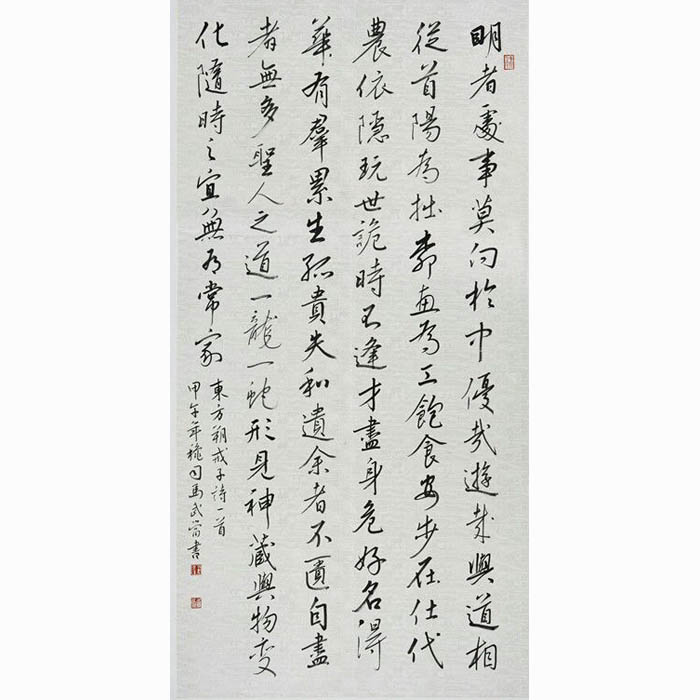 明者處事莫尚於中優哉遊哉與道相
從首陽為拙柳惠為工飽食安步在仕代
農依隱玩世詭時不逢才盡身危好名得
華有羣累生孤貴失和遺余者不匱自盡
者無多聖人之道一龍一蛇形見神藏與物變
化隨時之宜無有常家
東方朔戒子詩一首
甲午年秋司馬武當書